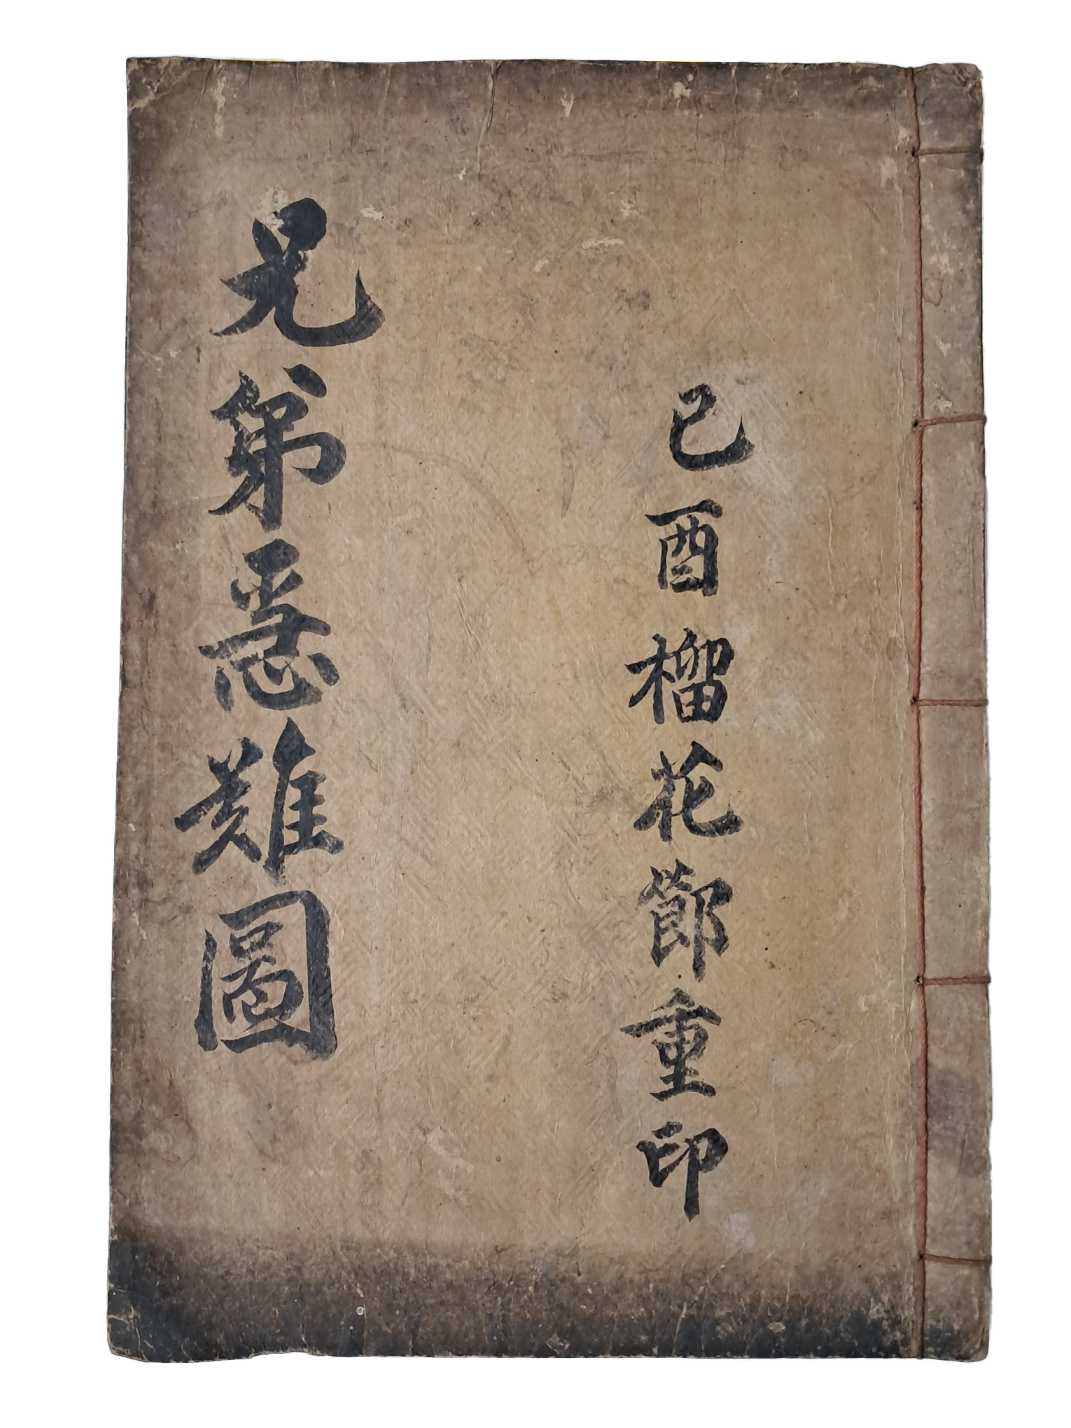 己酉榴花節重印
兄弟急難圖